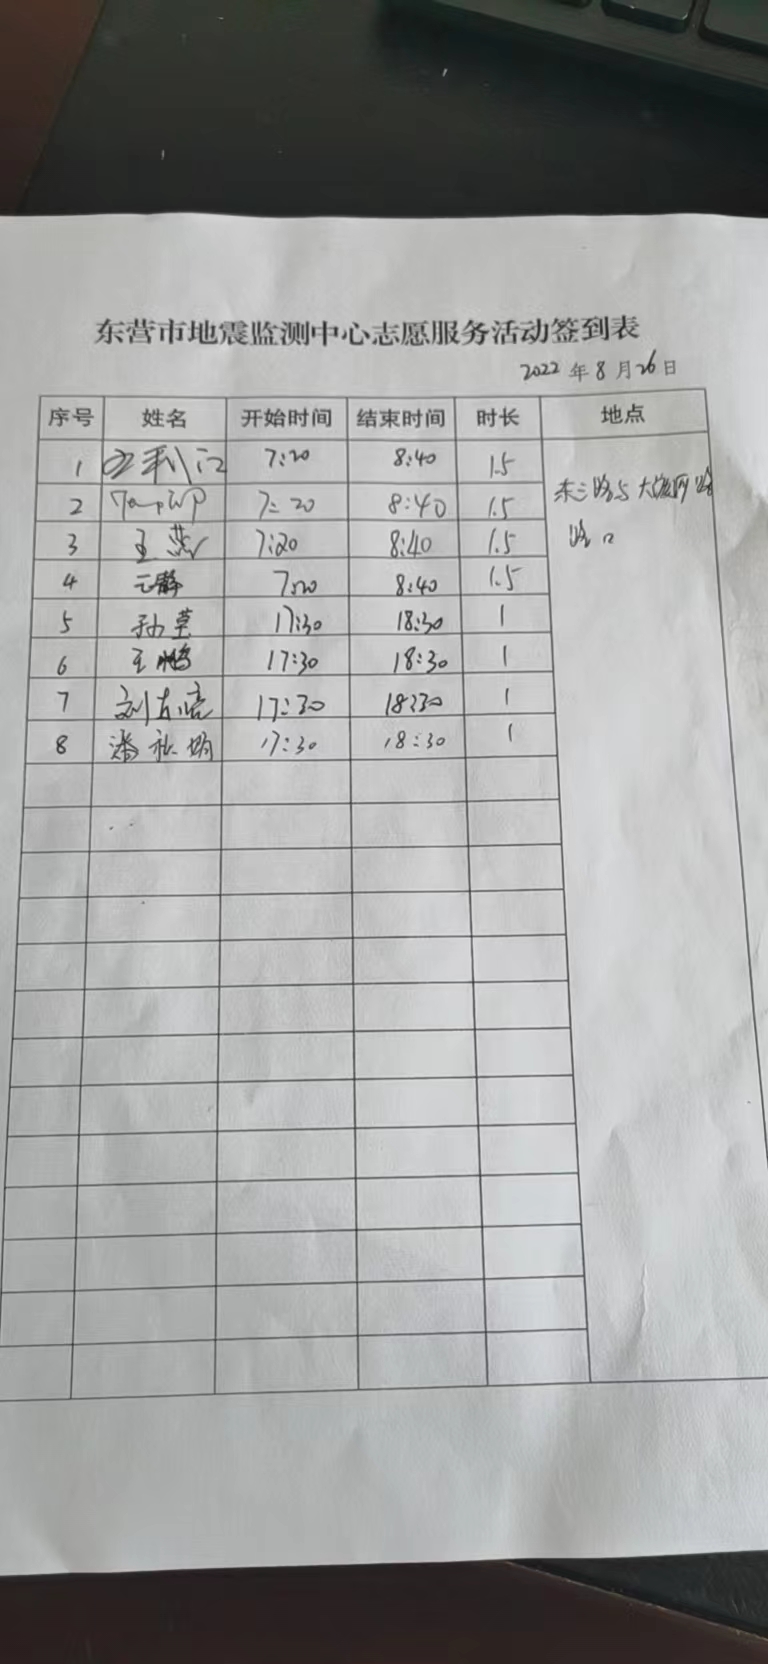 东营市地震监测中心志愿服务活动签到表
2022年8月26日
序号 姓名 开始时间 结束时间 时长 地点
1 7:20 8:40 1.5
2 7:20 8:40 1.5 东三路与大渡河路
3 王燕 7:20 8:40 1.5 路口
4 7:20 8:40 1.5
5 孙莹 17:30 18:30 1
6 王鹏 17:30 18:30 1
7 刘 17:30 18:30 1
8 潘 娟 17:30 18:30 1